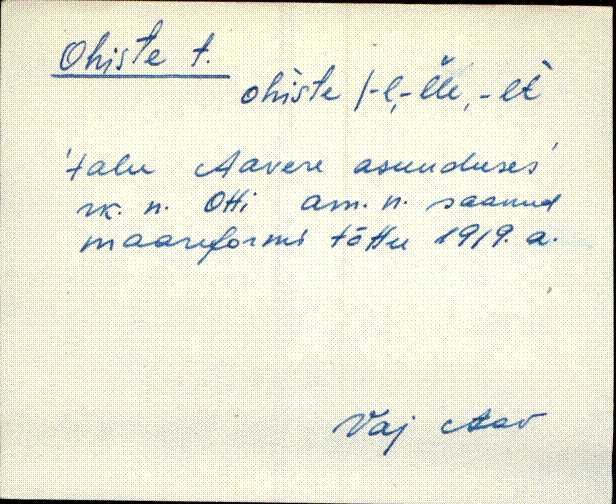 Ohiste t.
ohiste /-l, -lle, -lt
'talu Aavere asunduses'
rk. n. Otti am. n. saanud
maareformi tõttu 1919. a.
Vaj Aav